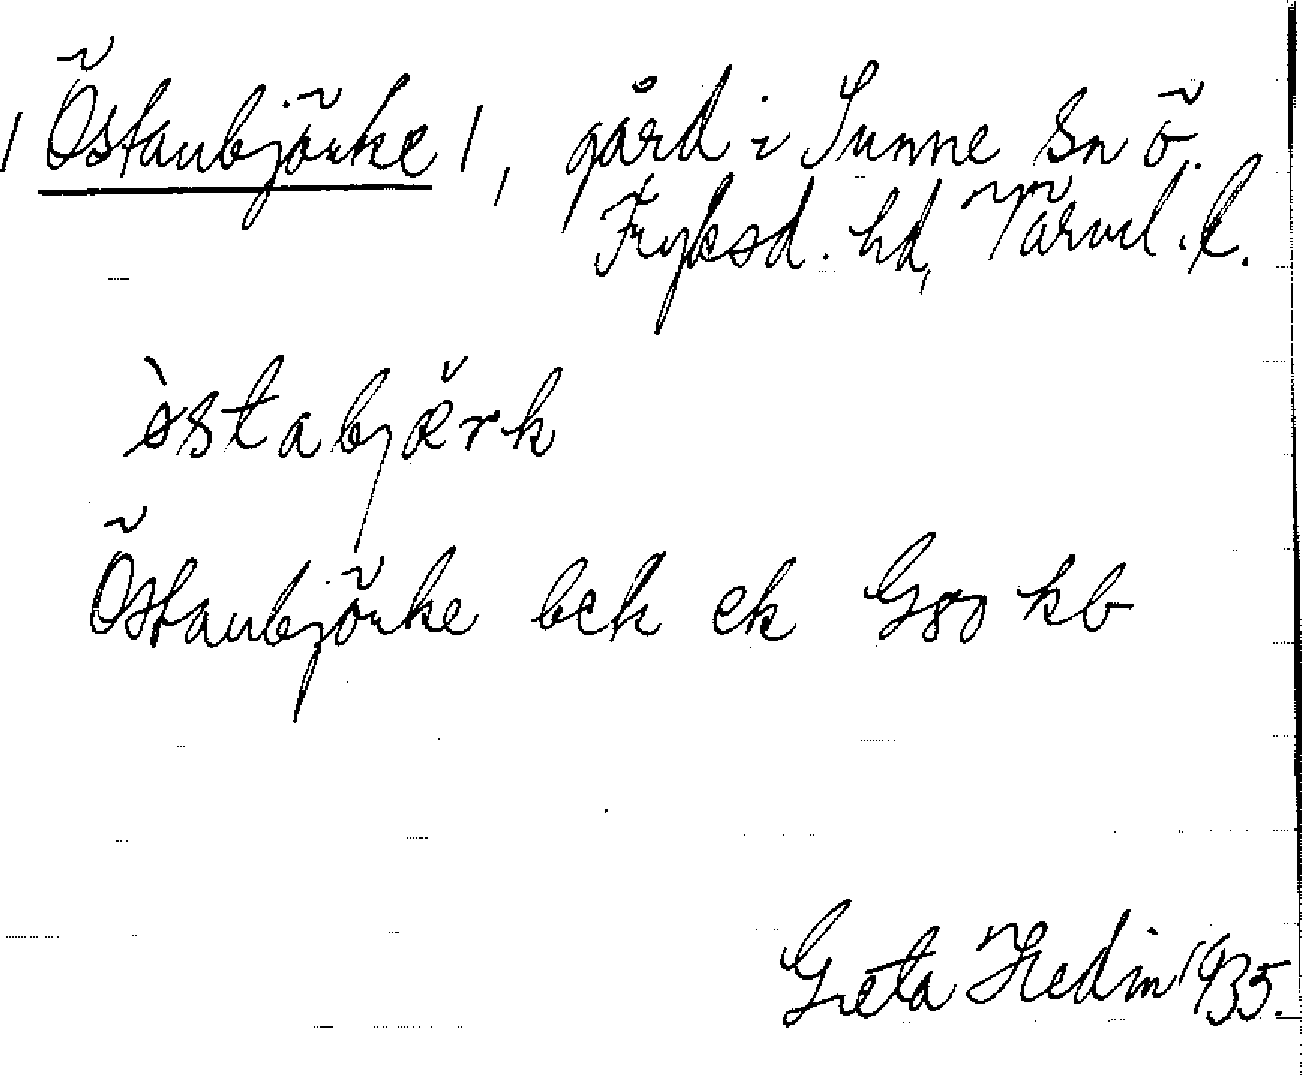 / Östanbjörke /, gård i Sunne sn ö.
Fryksd. hd, Värml. l.
östabjærk
Östanbjörke bek ek G80 kb
Greta Hedin 1935.